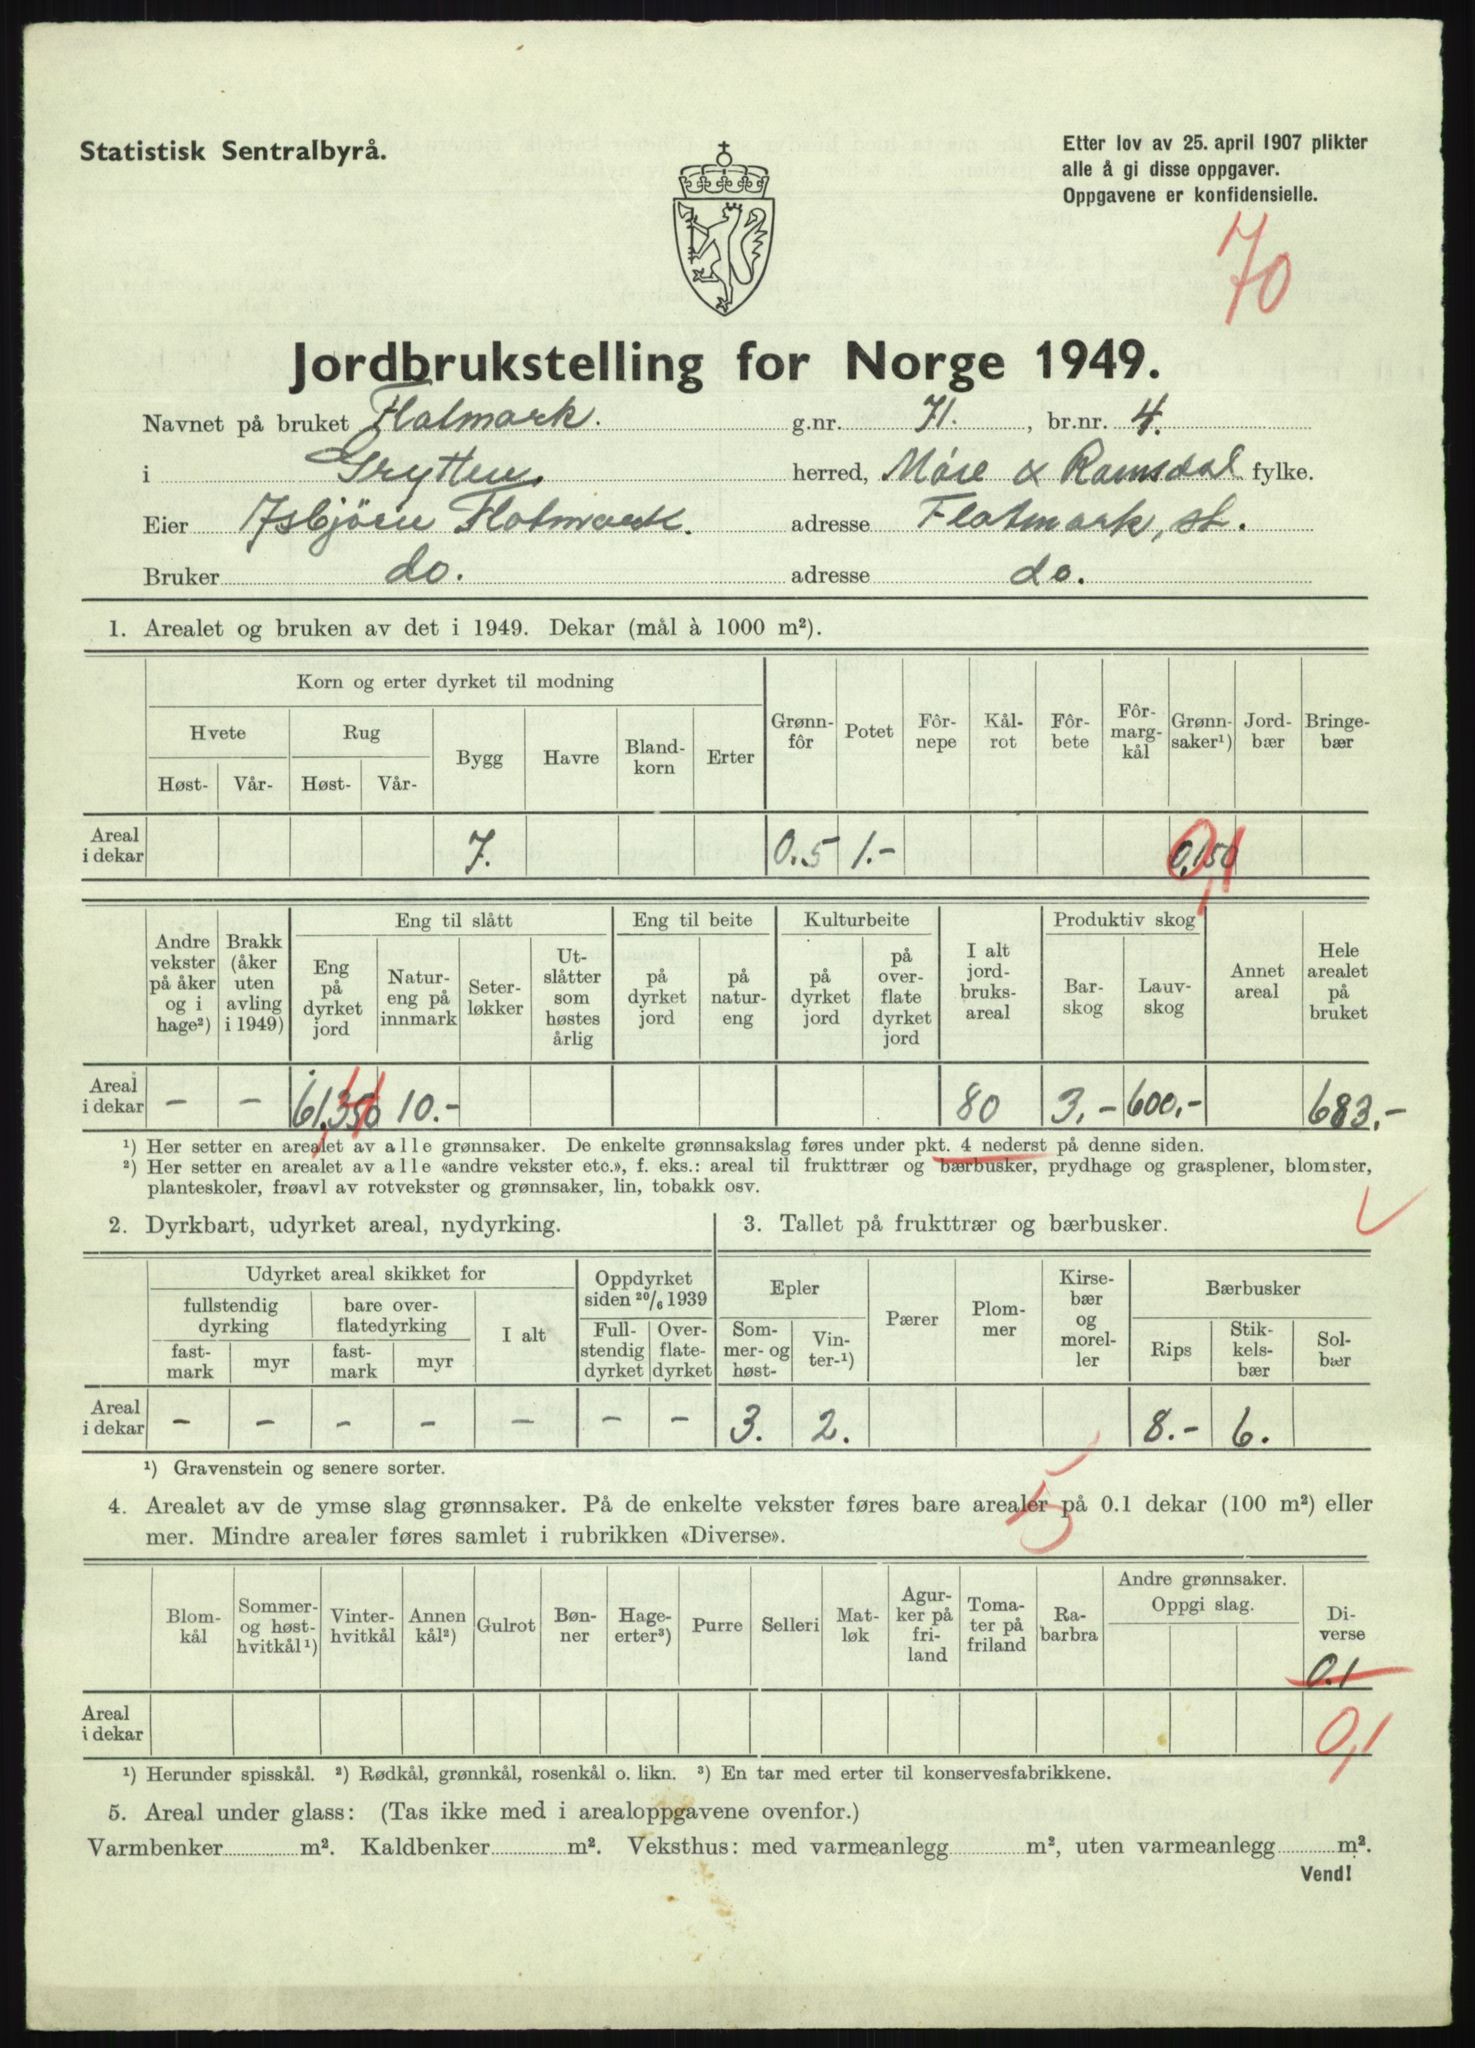 Statistisk Sentralbyrå.
Etter lov av 25. april 1907 plikter
alle å gi disse oppgaver.
Oppgavene er konfidensielle.
70
Jordbrukstelling for Norge 1949.
Navnet på bruket Flatmark. g.nr. 71. , br.nr. 4.
i Grytten. herred, Møre & Romsdal fylke.
Eier Isbjörn Flatmark. adresse Flatmark, st.
Bruker do. adresse do.
1. Arealet og bruken av det i 1949. Dekar (mål à 1000 m²).
Korn og erter dyrket til modning
Hvete Rug Bygg Havre Bland-korn Erter Grønn-fôr Potet Fôr-nepe Kål-rot Fôr-bete Fôr-marg-kål Grønn-saker¹) Jord-bær Bringe-bær
Høst- Vår- Høst- Vår-
Areal i dekar 7. 0.5 1.- 0,150 0,1
Andre vekster på åker og i hage²) Brakk (åker uten avling i 1949) Eng til slått Eng til beite Kulturbeite I alt jord-bruks-areal Produktiv skog Annet areal Hele arealet på bruket
Eng på dyrket jord Natur-eng på innmark Seter-løkker Ut-slåtter som høstes årlig på dyrket jord på natur-eng på dyrket jord på over-flate dyrket jord Bar-skog Lauv-skog
Areal i dekar - - 61,350 ,4 10.- 80 3.- 600.- 683.-
¹) Her setter en arealet av alle grønnsaker. De enkelte grønnsakslag føres under pkt. 4 nederst på denne siden.
²) Her setter en arealet av alle «andre vekster etc.», f. eks.: areal til frukttrær og bærbusker, prydhage og grasplener, blomster,
planteskoler, frøavl av rotvekster og grønnsaker, lin, tobakk osv.
2. Dyrkbart, udyrket areal, nydyrking.
3. Tallet på frukttrær og bærbusker.
Udyrket areal skikket for Oppdyrket siden 20/6 1939
fullstendig dyrking bare over-flatedyrking I alt Full-stendig dyrket Over-flate-dyrket
fast-mark myr fast-mark myr
Epler Pærer Plom-mer Kirse-bær og morel-ler Bærbusker
Som-mer- og høst- Vin-ter-¹) Rips Stik-kels-bær Sol-bær
Areal i dekar - - - - - - - 3. 2. 8.- 6.
¹) Gravenstein og senere sorter.
5
4. Arealet av de ymse slag grønnsaker. På de enkelte vekster føres bare arealer på 0.1 dekar (100 m²) eller
mer. Mindre arealer føres samlet i rubrikken «Diverse».
Blom-kål Sommer- og høst-hvitkål¹) Vinter-hvitkål Annen kål²) Gulrot Bøn-ner Hage-erter³) Purre Selleri Mat-løk Agur-ker på fri-land Toma-ter på friland Ra-barbra Andre grønnsaker. Oppgi slag. Di-verse
0.1
Areal i dekar 0,1
¹) Herunder spisskål. ²) Rødkål, grønnkål, rosenkål o. likn. ³) En tar med erter til konservesfabrikkene.
5. Areal under glass: (Tas ikke med i arealoppgavene ovenfor.)
Varmbenker m². Kaldbenker m². Veksthus: med varmeanlegg m², uten varmeanlegg m².
Vend!